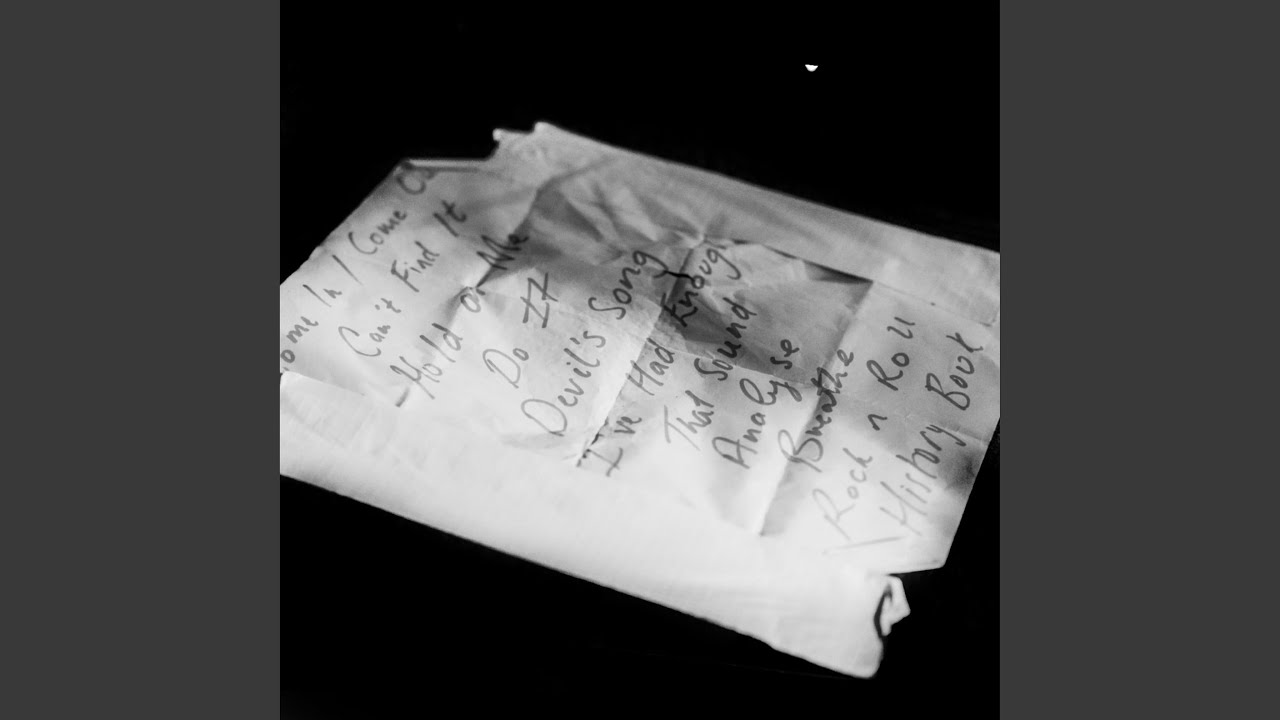 In / Come
Can't Find It
Hold on Me
Do It
Devil's Song
I've Had Enough
That Sound
Analyse
Breathe
Rock n Roll
History Book